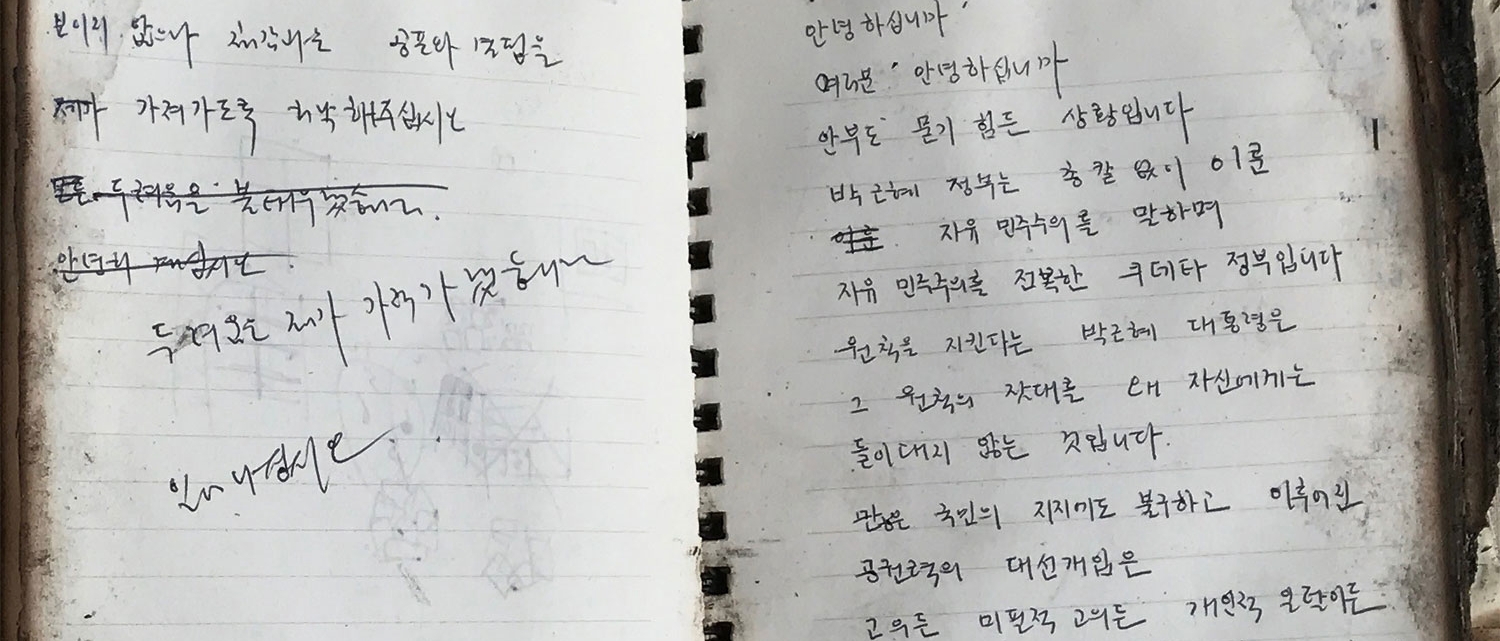 보이지 않으나 체감하는 공포와 결핍을
제가 가져가도록 허락해주십시오
모든 두려움은 불태우겠습니다.
안녕히 계십시오.
두려움은 제가 가져가겠습니다
일어나십시오
안녕하십니까
여러분 안녕하십니까
안부도 묻기 힘든 상황입니다
박근혜 정부는 총칼 없이 이룬
자유 민주주의를 말하며
자유 민주주의를 전복한 쿠데타 정부입니다
원칙을 지킨다는 박근혜 대통령은
그 원칙의 잣대를 왜 자신에게는
들이대지 않는 것입니다.
많은 국민의 지지에도 불구하고 이루어진
공권력의 대선개입은
고의든 미필적 고의든 개인적 일탈이든